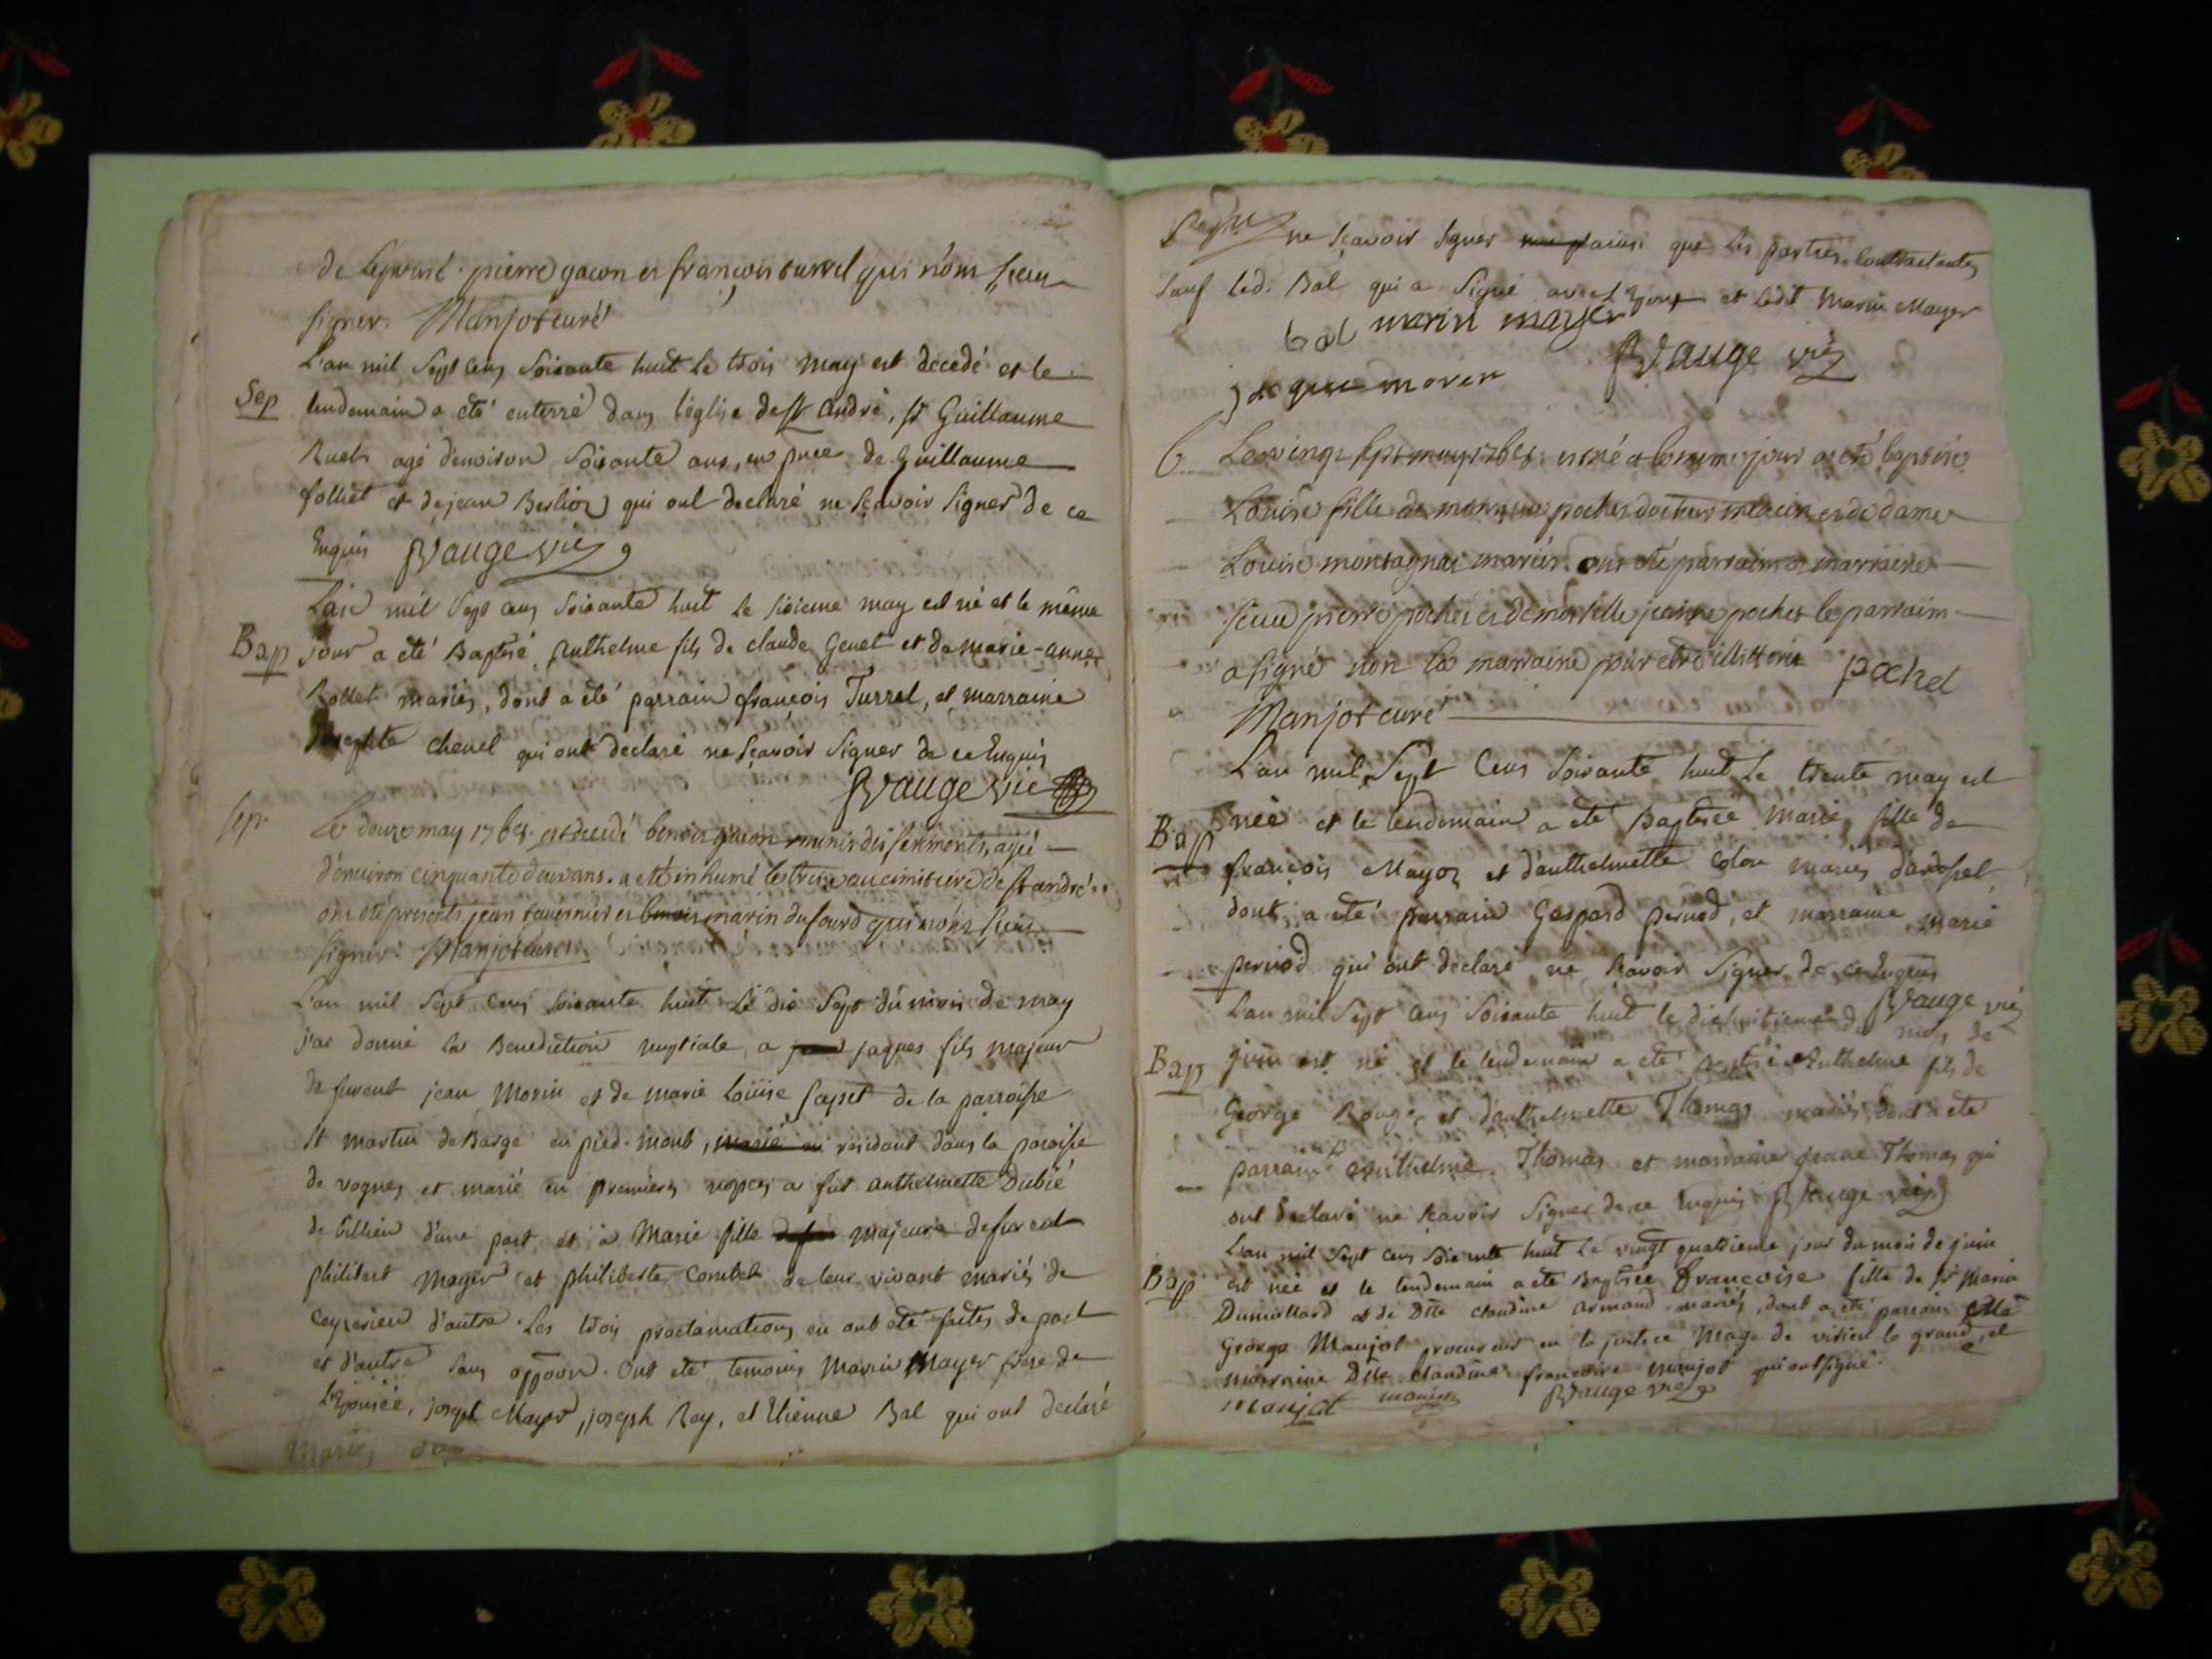 de Lepousé. pierre gacon et françois turrel qui n'ont sceu
signer. Manjot curé
L'an mil Sept Cens Soixante huit le trois may est décédé et le
Sep lendemain a eté enterré dans l'église de St André, Sr Guillaume
Ruet agé d'environ Soixante ans, en pnce de Guillaume
folliet et de jean Berlioz qui ont declaré ne Sçavoir signer de ce
Enquis RVauge vic
L'an mil Sept cens Soixante huit le Sixieme may est né et le même
Bap jour a été Baptisé Anthelme fils de claude Genet et de marie-anne
Rollet mariés, dont a été parrain françois Turrel, et marraine
chenel qui ont declaré ne Sçavoir signer de ce Enquis
RVauge vic
Sep. Le douze may 1768. est decedé benoit gacon munis des Sacrements, agé
d'environ cinquante deux ans. a eté inhumé le treize au cimitiere de St andré.
ont eté presents jean tavernier et benoit marin dufourd qui n'ont sceu
signer. Manjot curé
L'an mil Sept Cens Soixante huit le dix Sept du mois de may
j'ai donné la Benediction nuptiale a jaques fils majeur
de furent jean Morin et de marie Loüise de la parroisse
St martin de Barge en pied-mont, marié en residant dans la paroisse
de vognes et marié en premieres nopces a fut anthelmette Dubié
de billieu d'une part, et a Marie fille majeure de furent
philibert Mayer et philiberte Combet de leur vivant mariés de
Ceyzerieu d'autre. Les trois proclamations en ont eté faites de part
et d'autre sans oppoon. Ont eté temoins Marin Mayer frere de
l'Epousée, joseph Mayer, joseph Rey, et Etienne Bal qui ont declaré
ne sçavoir signer ainsi que les parties contractantes
Sauf led. Bal qui a Signé avec l'Epoux et ledit Marin Mayer
bal marin mayer
jacque moren RVauge vic
B. Le vingt sept may 1768. est né et le meme jour a eté baptisé
Louise fille de pochet docteur medecin et de dame
Louise montagnat mariés. ont eté parrain et marraine
Sieur pierre pochet et demoiselle jeanne pochet le parrain
a signé non la marraine pour etre illitterée pochet
Manjot curé
L'an mil Sept Cens Soixante huit le trente may est
Bap née et le lendemain a eté Baptisée Marie fille de
françois Mayor et d'anthelmette Colon mariés
dont a eté parrain Gaspard pernod, et marraine marie
pernod qui ont declaré ne Sçavoir Signer de ce Enquis
RVauge vic
L'an mil Sept Cens Soixante huit le dixhuitieme du mois de
Bap juin est né et le lendemain a eté Baptisé Anthelme fils de
George Rouge, et d'anthelmette Thomas mariés, dont a eté
parrain Anthelme Thomas et marraine jeane Thomas qui
ont declaré ne Sçavoir Signer de ce Enquis RVauge vic
L'an mil Sept Cens Soixante huit le vingt quatrieme jour du mois de juin
Bap est née et le lendemain a eté Baptisée françoise fille de Sr Marin
Dumollard et de Dlle claudine armand mariés, dont a eté parrain
George Manjot procureur en la justice Mage de virieu le grand, et
marraine Dlle claudine françoise manjot qui ont signé.
manjot manjot RVauge vic